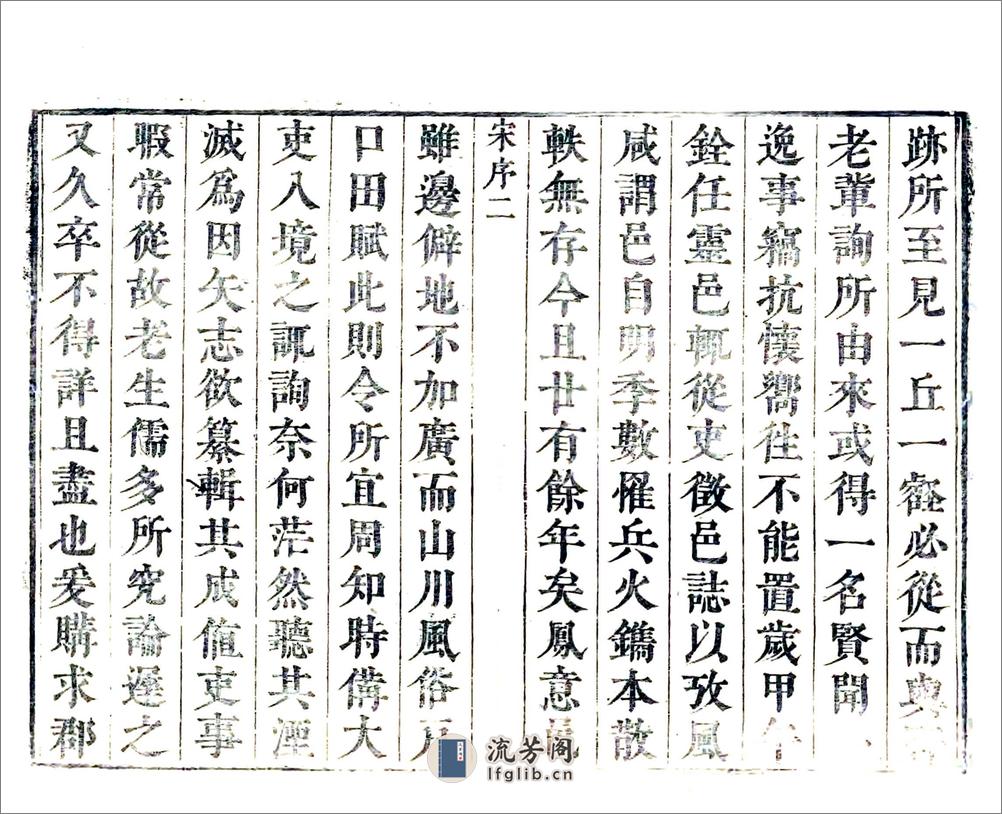 跡所至見一丘一壑必從而輿
老輩詢所由來或得一名賢聞一
逸事竊抗懷嚮徃不能置歲甲午
銓任靈邑輒從吏徵邑誌以攷風
咸謂邑自明季數罹兵火鐫本散
軼無存今且廿有餘年矣鳳意
宋序二
雖邊僻地不加廣而山川風俗戸
口田賦此則令所宜周知時備大
吏入境之諏詢奈何茫然聽其湮
滅爲因矢志欲纂輯其成値吏事
暇常從故老生儒多所究論遲之
又久卒不得詳且盡也爰購求郡
流芳阁
lfglib.cn